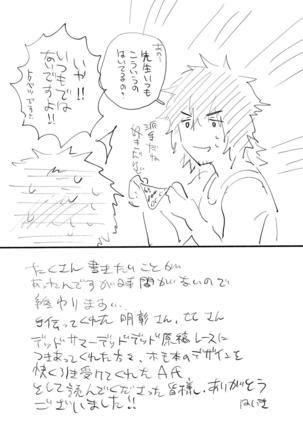 あの…
先生いつも
こういうの
はいてるの?
いや!!
いつもでは
ないですよ!!
トクベツです…
派手だね
たくさん書きたいことが
あったんですが時間がないので
終わります…
手伝ってくれた明彰さん、ヒヒさん
デッドサマーデッドデッド原稿レースに
つきあってくれた方々、ホモ本のデザインを
快く引き受けてくれたA代
そして読んでくださった皆様、ありがとう
ございました!!